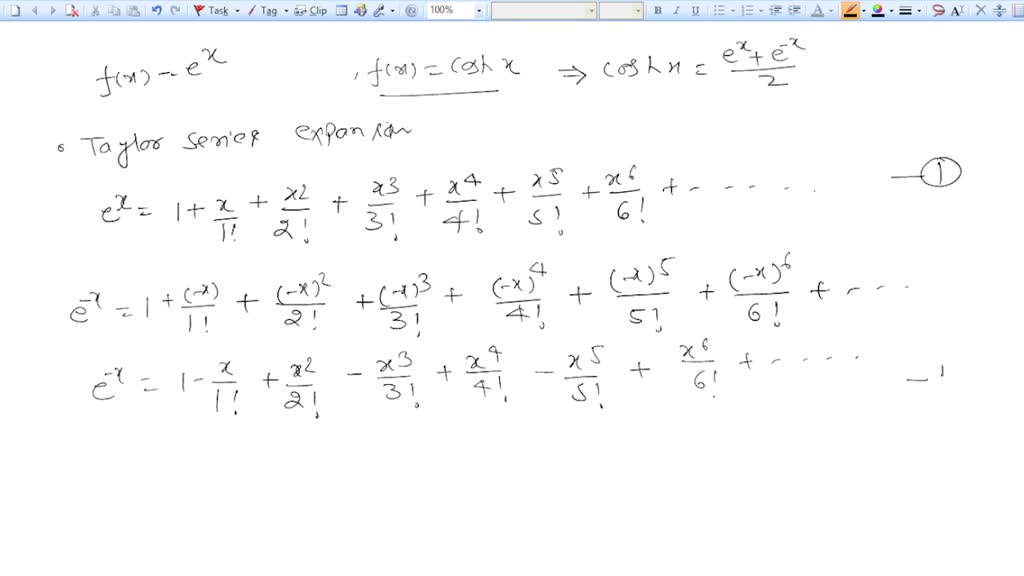 Task Tag Clip 100% B I U A
f(x) = e^x , f(x) = cosh x ⇒ cosh x = (e^x + e^-x)/2
• Taylor series expansion
e^x = 1 + x/1! + x2/2! + x3/3! + x4/4! + x5/5! + x6/6! + ------ —①
e^-x = 1 + (-x)/1! + (-x)^2/2! + (-x)^3/3! + (-x)^4/4! + (-x)^5/5! + (-x)^6/6! + ----
e^-x = 1 - x/1! + x2/2! - x3/3! + x4/4! - x5/5! + x6/6! + ----- — 1